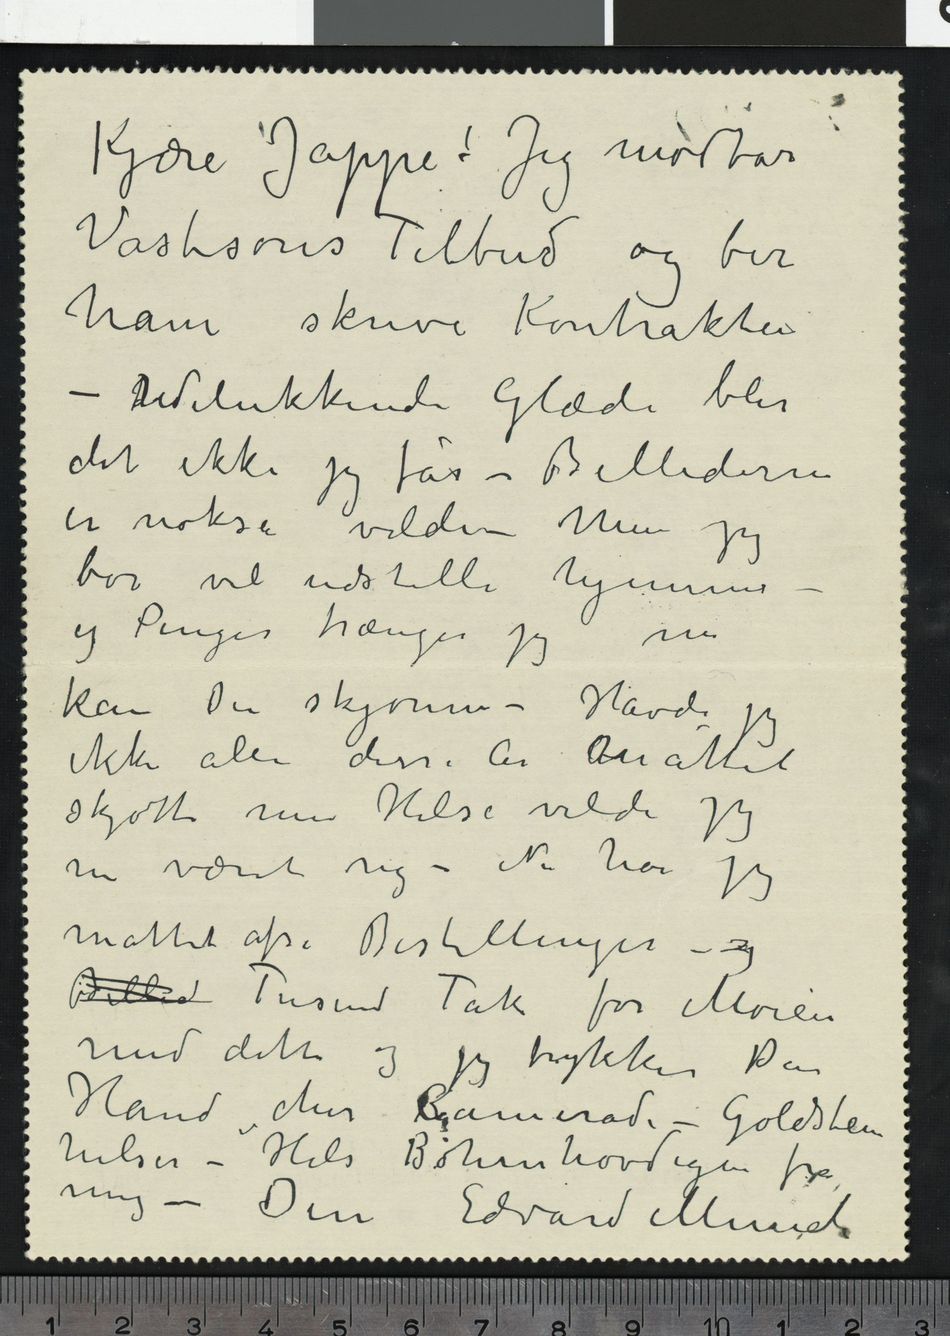 Kjære Jappe! Jeg modtar
Vastsons Tilbud og ber
ham skrive Kontrakten
– Udelukkende Glæde blir
det ikke jeg får – Billederne
er nokså vilde – Men jeg
bør vel udstille hjemme –
og Penger trænger jeg nu
kan Du skjønne – Havde jeg
ikke alle disse år måttet
skjøtte min Helse vilde jeg
nu været rig – Nu har jeg
måttet afse Bestillinger – og
Tusind Tak for Moien
med dette og jeg trykker Din
Hånd „cher Camerade – Goldstein
hilser – Hils Bohemhovdigen fra
mig – Din Edvard Munch
1 2 3 4 5 6 7 8 9 10 1 2 3